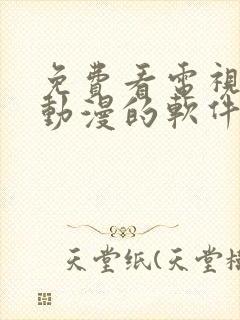 免費看電視
動漫的軟件
天堂纸(天堂